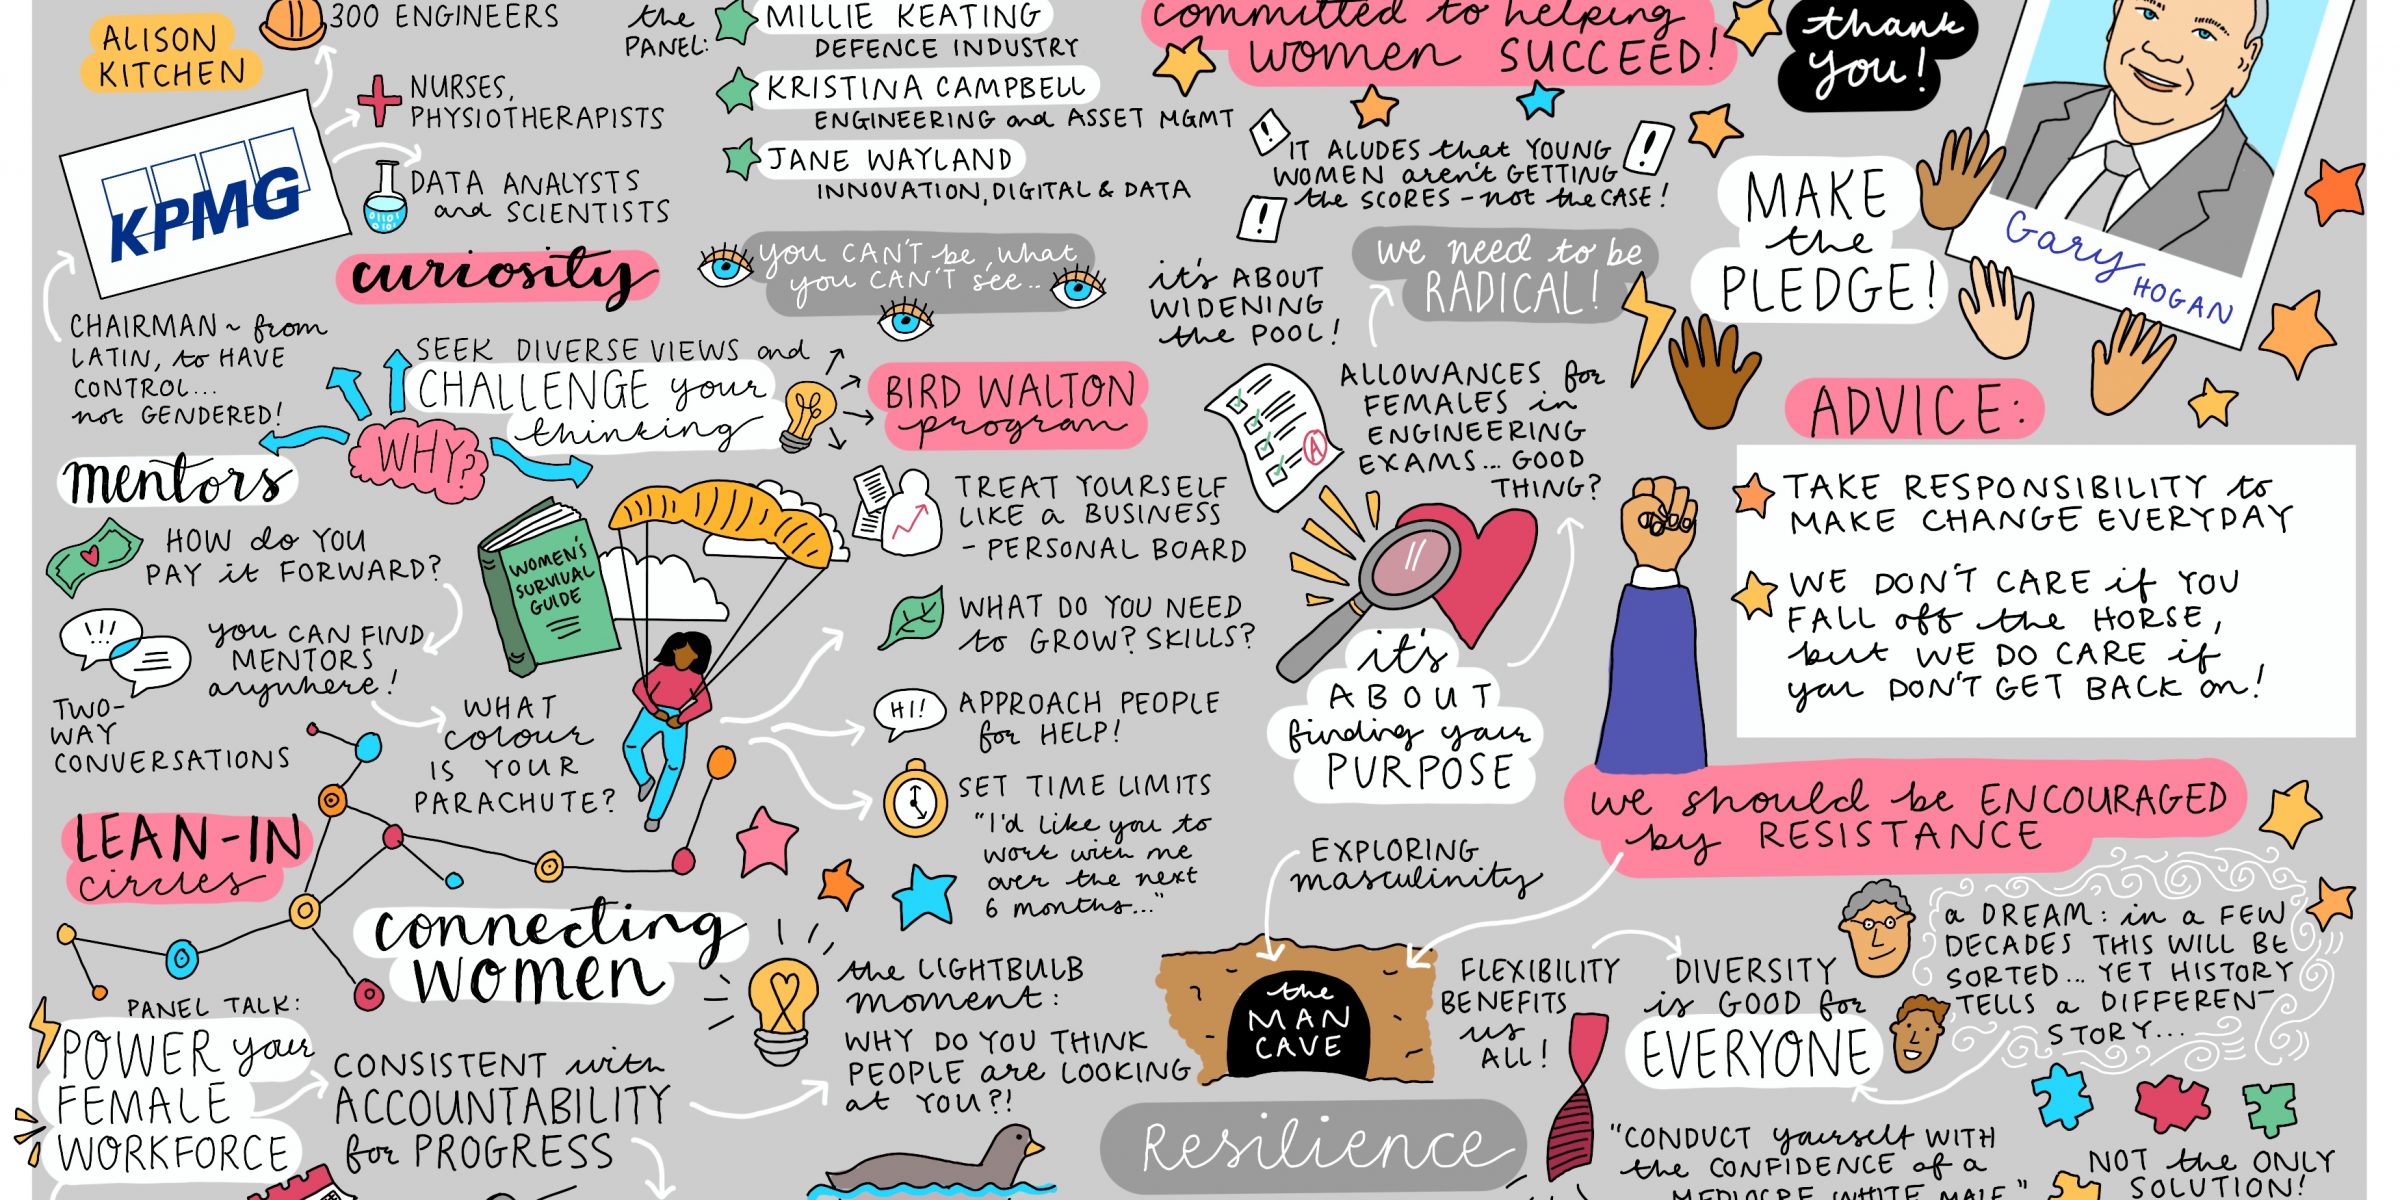 ALISON
KITCHEN
300 ENGINEERS
NURSES,
PHYSIOTHERAPISTS
DATA ANALYSTS
and SCIENTISTS
KPMG
CHAIRMAN ~ from
LATIN, to HAVE
CONTROL...
not GENDERED!
curiosity
the
PANEL:
MILLIE KEATING
DEFENCE INDUSTRY
KRISTINA CAMPBELL
ENGINEERING and ASSET MGMT
JANE WAYLAND
INNOVATION, DIGITAL & DATA
you CAN'T be, what
you CAN'T see..
SEEK DIVERSE VIEWS and
CHALLENGE your
thinking
WHY?
mentors
HOW do YOU
PAY it FORWARD?
!!!
you CAN FIND
MENTORS
anywhere!
TWO-
WAY
CONVERSATIONS
WHAT
colour
IS YOUR
PARACHUTE?
WOMEN'S
SURVIVAL
GUIDE
BIRD WALTON
program
TREAT YOURSELF
LIKE a BUSINESS
- PERSONAL BOARD
WHAT DO YOU NEED
to GROW? SKILLS?
HI!
APPROACH PEOPLE
for HELP!
SET TIME LIMITS
"I'd like you to
work with me
over the next
6 months..."
LEAN-IN
circles
connecting
WOMEN
PANEL TALK:
POWER your
FEMALE
WORKFORCE
CONSISTENT with
ACCOUNTABILITY
for PROGRESS
the LIGHTBULB
moment:
WHY DO YOU THINK
PEOPLE are LOOKING
at YOU?!
committed to helping
women SUCCEED!
thank
you!
IT ALUDES that YOUNG
WOMEN aren't GETTING
the SCORES - not the CASE!
it's ABOUT
WIDENING
the POOL!
we need to be
RADICAL!
ALLOWANCES for
FEMALES in
ENGINEERING
EXAMS... GOOD
THING?
A
it's
ABOUT
finding your
PURPOSE
MAKE
the
PLEDGE!
Gary HOGAN
ADVICE:
TAKE RESPONSIBILITY to
MAKE CHANGE EVERYDAY
WE DON'T CARE if YOU
FALL off the HORSE,
but WE DO CARE if
you DON'T GET BACK on!
we should be ENCOURAGED
by RESISTANCE
EXPLORING
masculinity
the
MAN
CAVE
FLEXIBILITY
BENEFITS
us
ALL!
DIVERSITY
is GOOD for
EVERYONE
a DREAM: in a FEW
DECADES THIS WILL BE
SORTED... YET HISTORY
TELLS a DIFFERENT
STORY...
Resilience
"CONDUCT yourself WITH
the CONFIDENCE of a
MEDIOCRE WHITE MALE"
NOT the ONLY
SOLUTION!